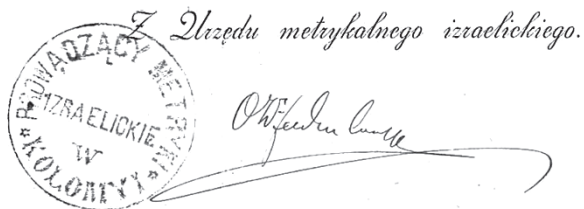 Z Urzędu metrykalnego izraelickiego.
PROWĄDZĄCY METRYKI
IZRAELICKIE
W
KOŁOMYI